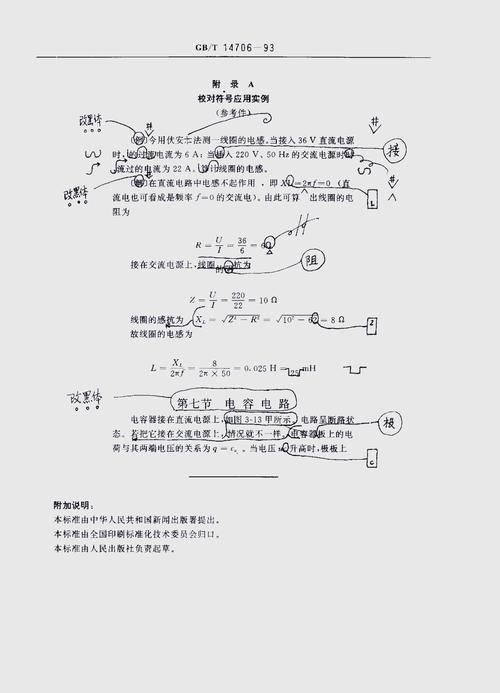 GB/T 14706—93
附 录 A
校对符号应用实例
(参考件)
改黑体
(例)今用伏安法测一线圈的电感。当接入 36 V 直流电源
时,的过流电流为 6 A;当接入 220 V、50 Hz 的交流电源时,
流过的电流为 22 A。算计线圈的电感。
接
改黑体
(解)在直流电路中电感不起作用,即 XL=2πf=0 (直
流电也可看成是频率 f=0 的交流电)。由此可算 出线圈的电
阻为
R = U/I = 36/6 = 6Ω
接在交流电源上,线圈 抗为
阻
Z = U/I = 220/22 = 10 Ω
线圈的感抗为 XL = √Z² − R² = √10² − 62 = 8 Ω
2
故线圈的电感为
L = XL/2πf = 8/2π × 50 = 0.025 H = 25 mH
改黑体
第七节 电容电路
电容器接在直流电源上,如图 3-13 甲所示。电路呈断路状
态。若把它接在交流电源上,情况就不一样。电容器板上的电
极
荷与其两端电压的关系为 q = c 。当电压 升高时,极板上
c
附加说明:
本标准由中华人民共和国新闻出版署提出。
本标准由全国印刷标准化技术委员会归口。
本标准由人民出版社负责起草。